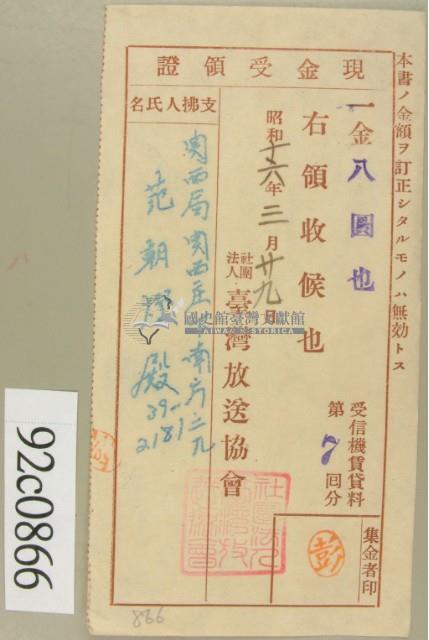 本書ノ金額ヲ訂正シタルモノハ無効トス
現金受領證
一金八圓也
受信機賃貸料
第7回分
集金者印
彭
右領收候也
昭和十六年三月廿九日
社團法人臺灣放送協會
支拂人氏名
関西局関西庄
南片三九
范朝
殿
39-
2181
國史館臺灣文獻館
TAIWAN HISTORICA
92c0866
866